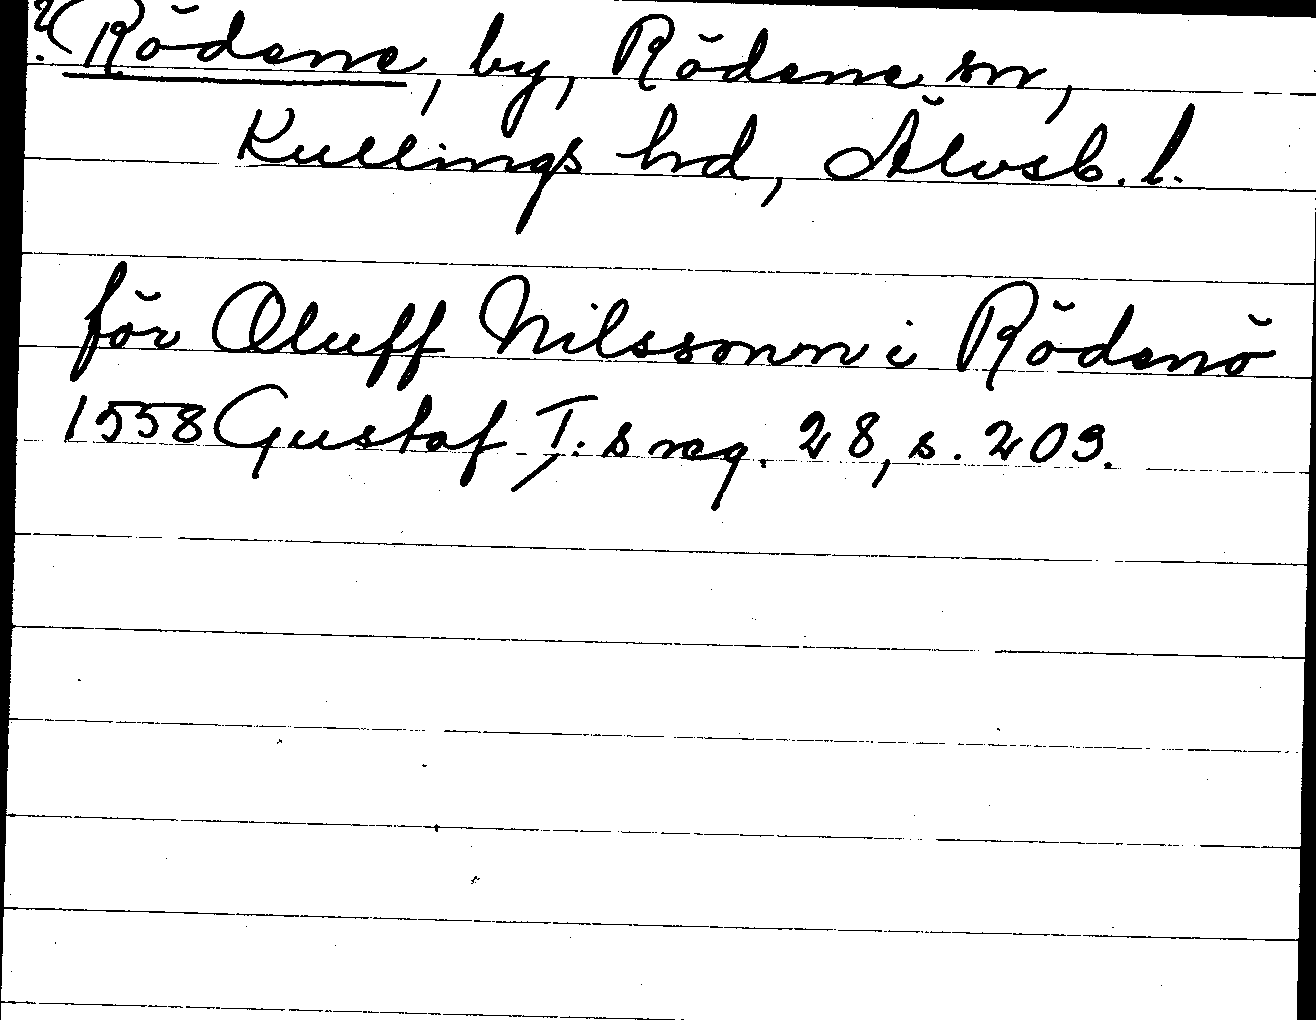 ? Rödene, by, Rödene sn,
Kullings hd, Älvsb. l.
för Oluff Nilssonn i Rödenö
1558 Gustaf I:s reg. 28, s. 209.